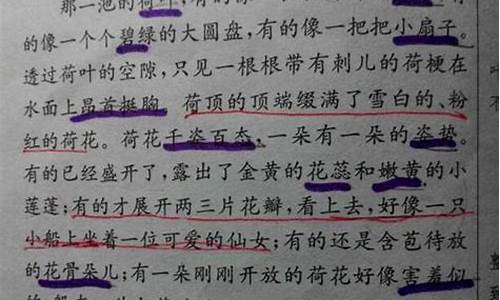 那一池的荷叶,有的像
的像一个个碧绿的大圆盘,有的像一把把小扇子。
透过荷叶的空隙,只见一根根带有刺儿的荷梗在
水面上昂首挺胸。荷顶的顶端缀满了雪白的、粉
红的荷花。荷花千姿百态,一朵有一朵的姿势。
有的已经盛开了,露出了金黄的花蕊和嫩黄的小
莲蓬;有的才展开两三片花瓣,看上去,好像一只
小船上坐着一位可爱的仙女;有的还是含苞待放
的花骨朵儿;有一朵刚刚开放的荷花好像害羞似